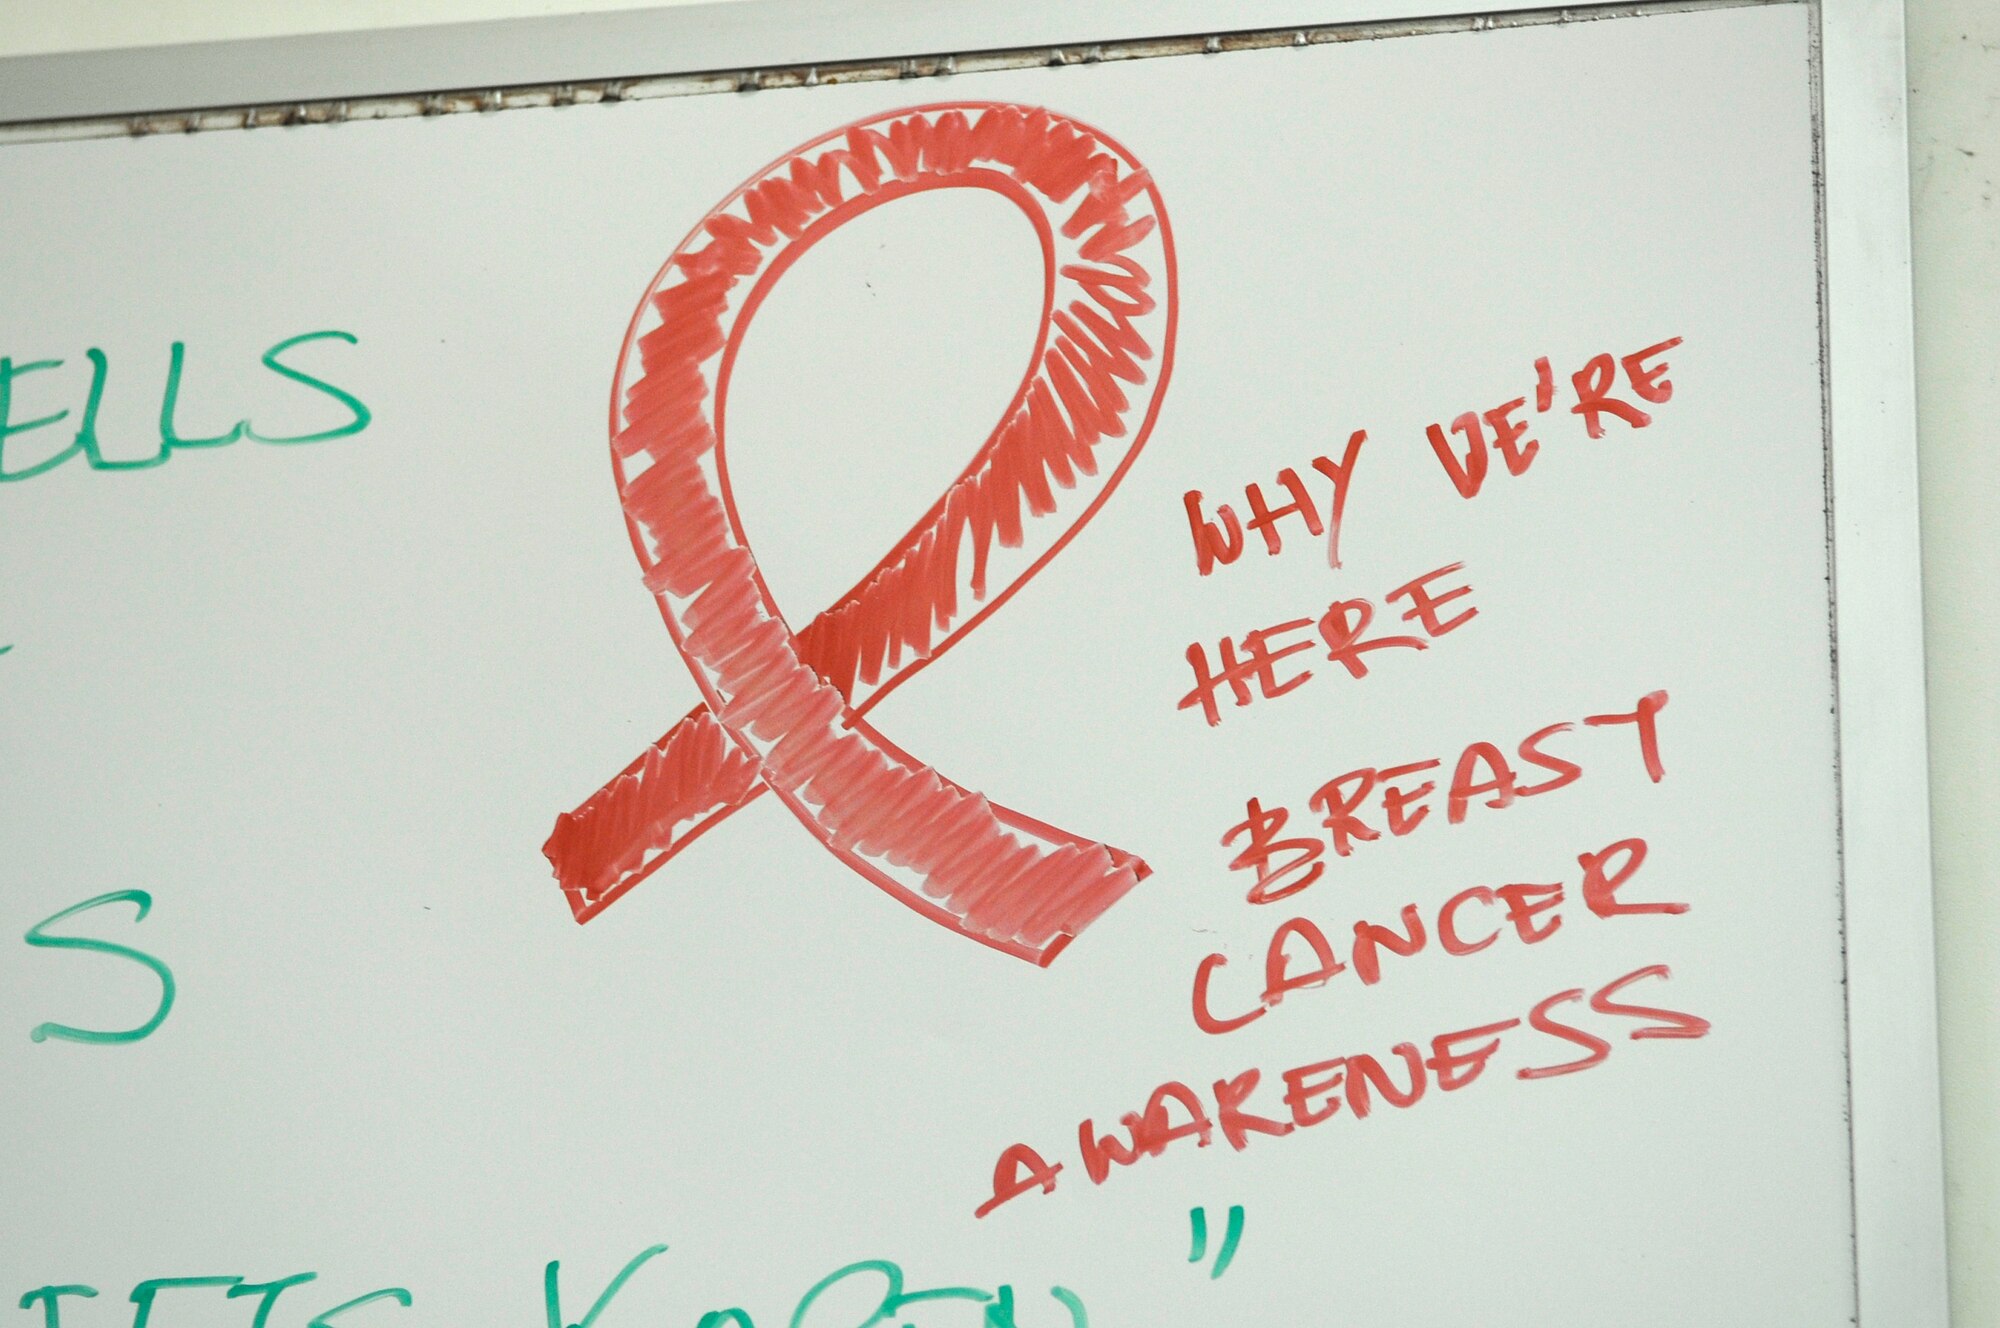 ELLS
WHY WE'RE
HERE
BREAST
CANCER
AWARENESS
S